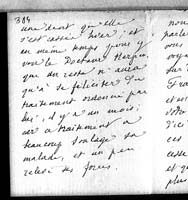 384
une dent qu'elle
s'est cassée hier ; et
en même temps pour y
voir le Docteur Harpin,
qui du reste n'aura
qu'à se féliciter du
traitement ordonné par
lui, il y a un mois.
ce traitement a
beaucoup soulagé sa
malade, et un peu
relevé ses forces.
nou
parle
vous
voya
sur
Fra
et
vot
d'ici
cess
et q
plus